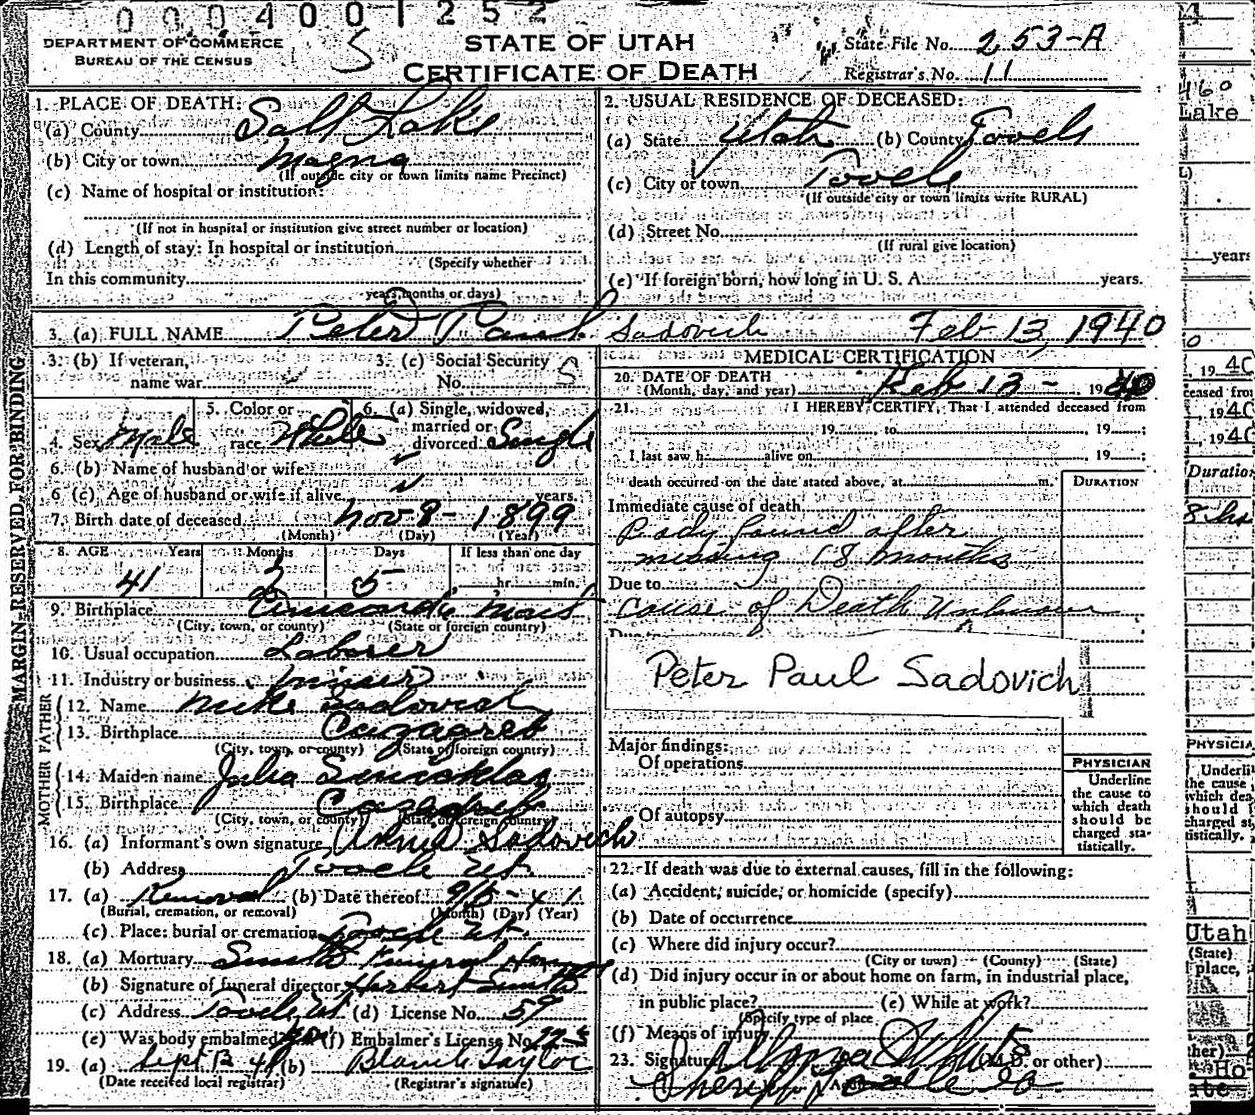 0 0 0 4 0 0 1 2 5 2
DEPARTMENT OF COMMERCE
BUREAU OF THE CENSUS
S
STATE OF UTAH
CERTIFICATE OF DEATH
State File No. 253-A
Registrar's No. 11
1. PLACE OF DEATH:
(a) County Salt Lake
(b) City or town Magna
(If outside city or town limits name Precinct)
(c) Name of hospital or institution:
(If not in hospital or institution give street number or location)
(d) Length of stay: In hospital or institution
(Specify whether
In this community
years, months or days)
2. USUAL RESIDENCE OF DECEASED:
(a) State Utah (b) County Tooele
(c) City or town Tooele
(If outside city or town limits write RURAL)
(d) Street No.
(If rural give location)
(e) If foreign born, how long in U. S. A. years.
3. (a) FULL NAME Peter Paul Sadovich Feb 13, 1940
3. (b) If veteran, name war
3. (c) Social Security No. S
4. Sex Male
5. Color or race White
6. (a) Single, widowed, married or divorced Single
6. (b) Name of husband or wife
6 (c). Age of husband or wife if alive years.
7. Birth date of deceased Nov 8 - 1899
(Month) (Day) (Year)
8. AGE Years Months Days If less than one day
41 5 hr. min.
9. Birthplace
(City, town, or county) (State or foreign country)
10. Usual occupation Laborer
11. Industry or business
FATHER
12. Name Mike Sadovich
13. Birthplace
(City, town, or county) (State or foreign country)
MOTHER
14. Maiden name Julia
15. Birthplace
(City, town, or county) (State or foreign country)
16. (a) Informant's own signature Sadovich
(b) Address Tooele Ut.
17. (a) Removal (b) Date thereof 9/5-41
(Burial, cremation, or removal) (Month) (Day) (Year)
(c) Place: burial or cremation Tooele Ut.
18. (a) Mortuary Smith Funeral Home
(b) Signature of funeral director Herbert Smith
(c) Address Tooele Ut (d) License No. 59
(e) Was body embalmed? (f) Embalmer's License No.
19. (a) Sept 13 41 (b) Blanche Taylor
(Date received local registrar) (Registrar's signature)
MEDICAL CERTIFICATION
20. DATE OF DEATH
(Month, day, and year) Feb 13 - 1940
21. I HEREBY CERTIFY, That I attended deceased from
19 to , 19 ;
I last saw h alive on , 19 ;
death occurred on the date stated above, at m.
DURATION
Immediate cause of death
Body found after
missing 18 months
Due to
Cause of Death Unknown
Peter Paul Sadovich
Major findings:
Of operations
Of autopsy
PHYSICIAN
Underline
the cause to
which death
should be
charged sta-
tistically.
22. If death was due to external causes, fill in the following:
(a) Accident, suicide, or homicide (specify)
(b) Date of occurrence
(c) Where did injury occur?
(City or town) (County) (State)
(d) Did injury occur in or about home on farm, in industrial place,
in public place? (e) While at work?
(Specify type of place
(f) Means of injury
23. Signature (M.D. or other)
Sheriff Co
MARGIN RESERVED FOR BINDING
460
Lake
years
19 40
1940
1940
Duration
8 hs
PHYSICIA
Utah
(State)